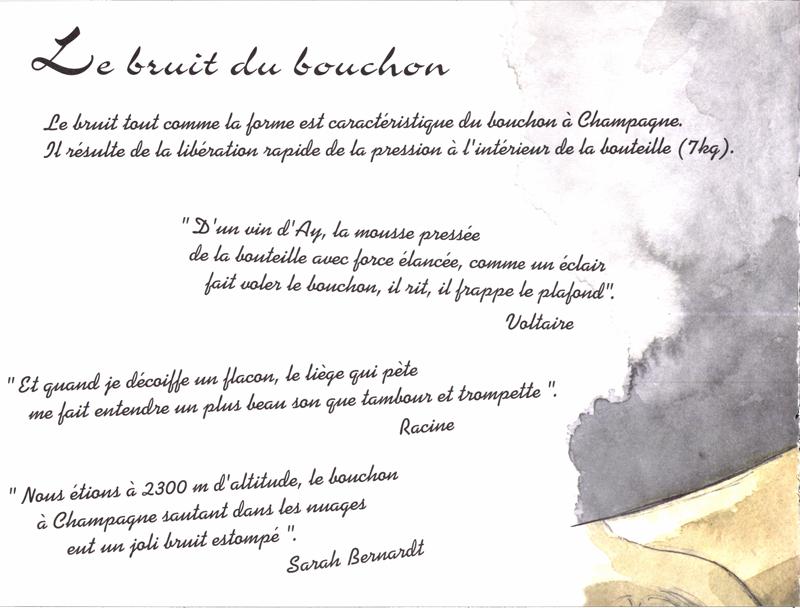 Le bruit du bouchon
Le bruit tout comme la forme est caractéristique du bouchon à Champagne.
Il résulte de la libération rapide de la pression à l'intérieur de la bouteille (7kg).
" D'un vin d'Ay, la mousse pressée
de la bouteille avec force élancée, comme un éclair
fait voler le bouchon, il rit, il frappe le plafond".
Voltaire
" Et quand je décoiffe un flacon, le liège qui pète
me fait entendre un plus beau son que tambour et trompette ".
Racine
" Nous étions à 2300 m d'altitude, le bouchon
à Champagne sautant dans les nuages
eut un joli bruit estompé ".
Sarah Bernardt